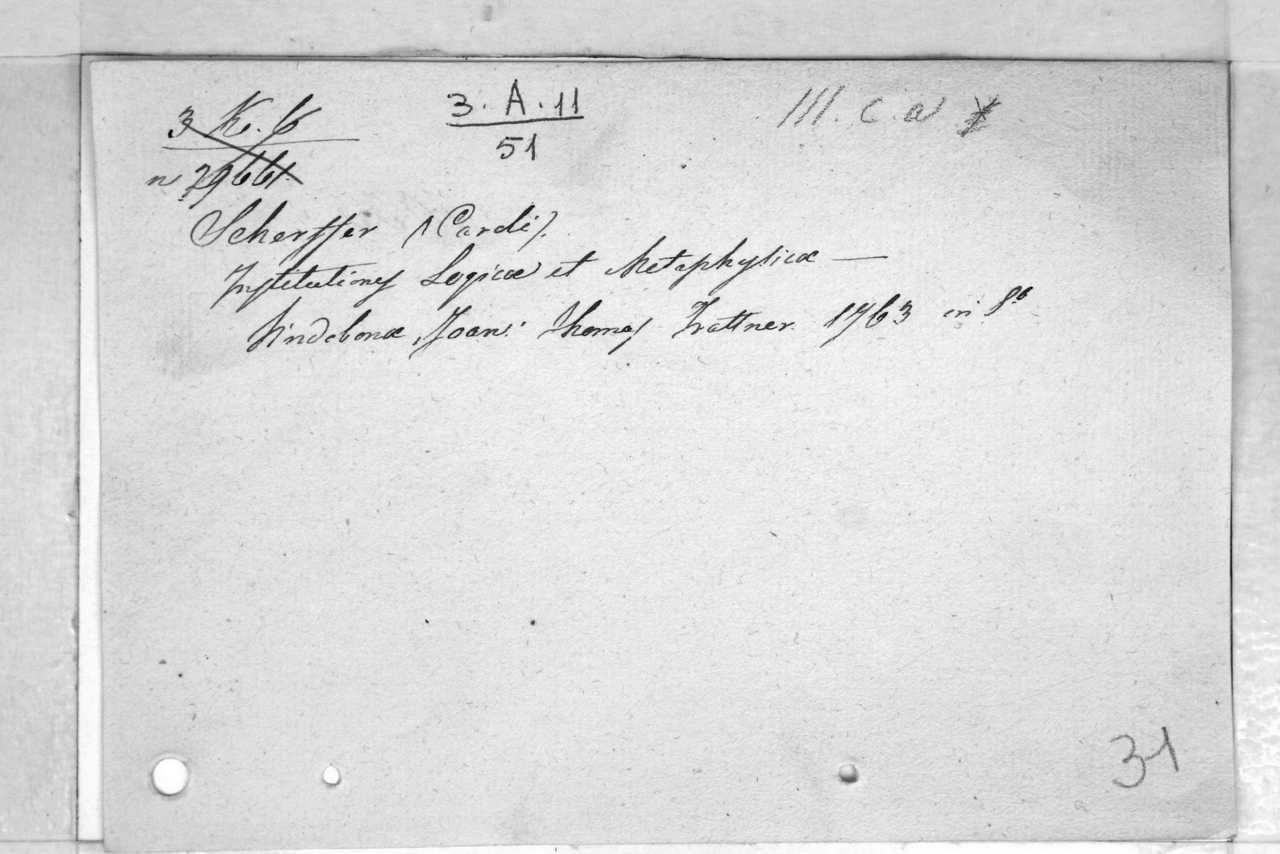 3 K. 6
3. A. 11
51
III. c. a
n 7966
Scherffer (Cardi).
Institutiones Logicæ et Metaphysicæ —
Vindobonæ, Joan: Thomas Trattner 1763 in 8º
31